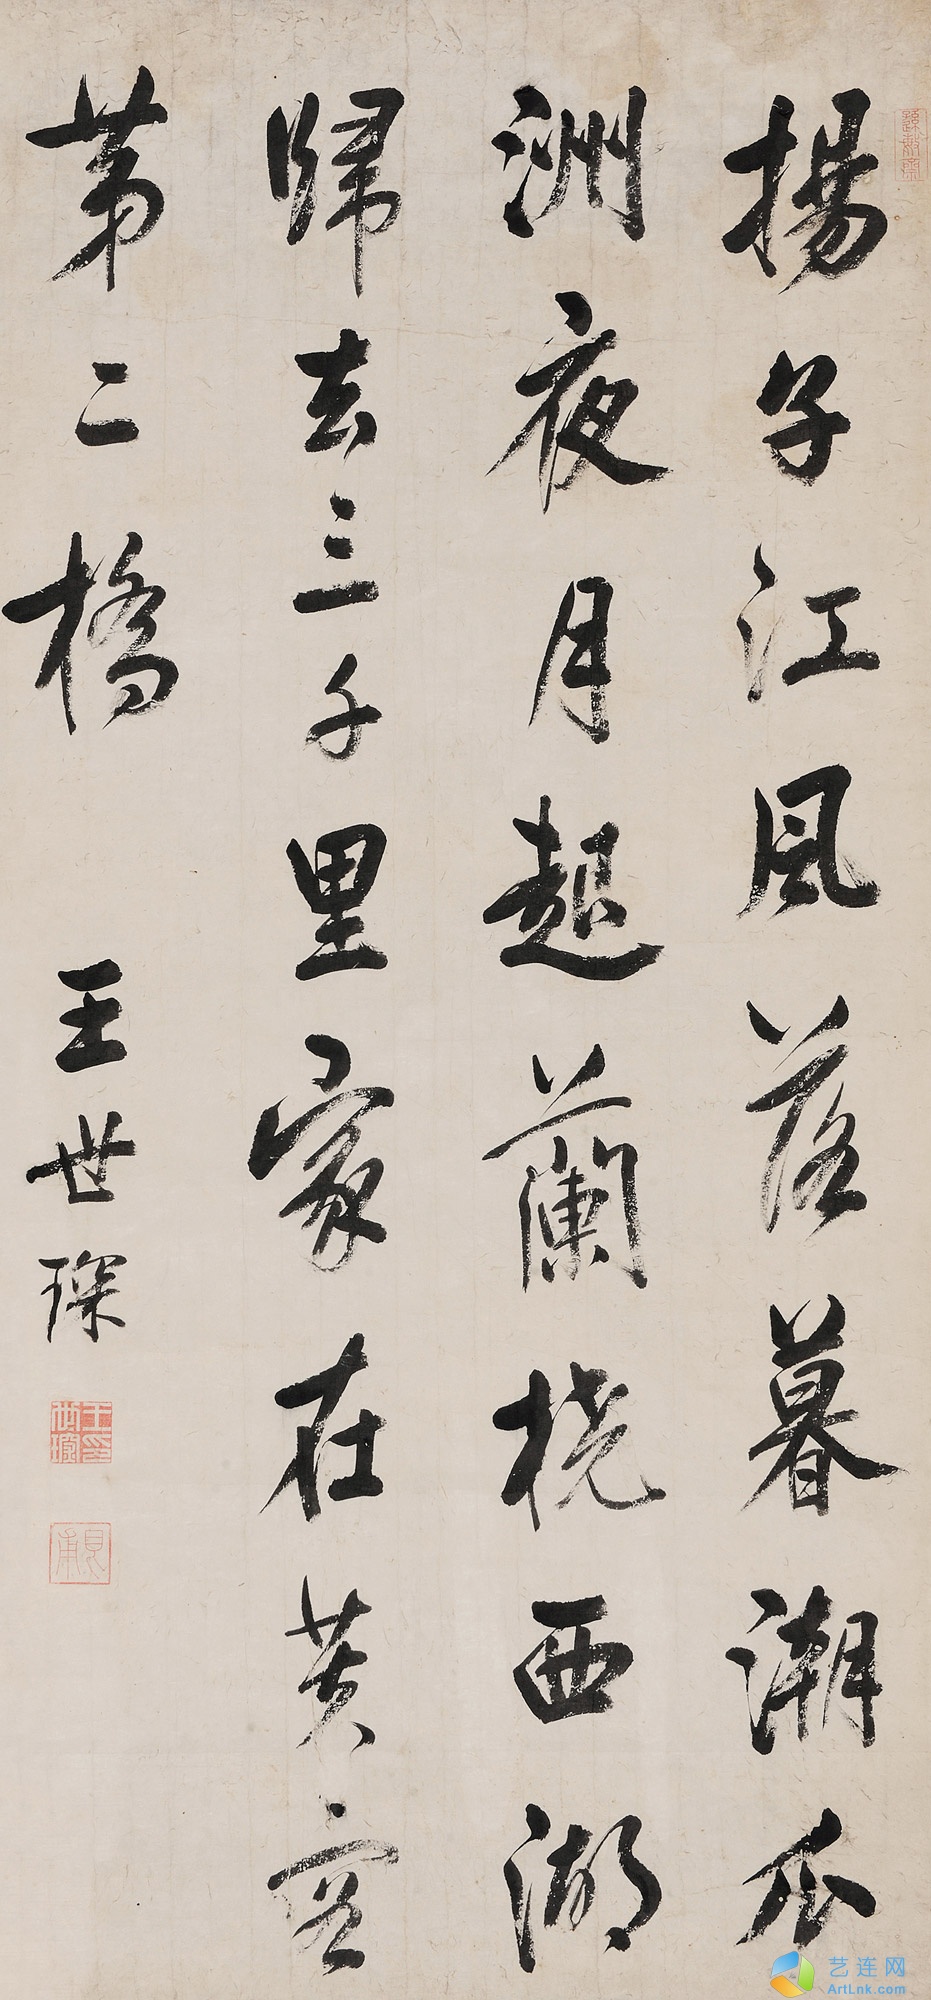 揚子江風落暮潮瓜
洲夜月起蘭橈西湖
歸去三千里家在黃容
第二橋
王世琛
王世琛印
艺连网
ArtLnk.com